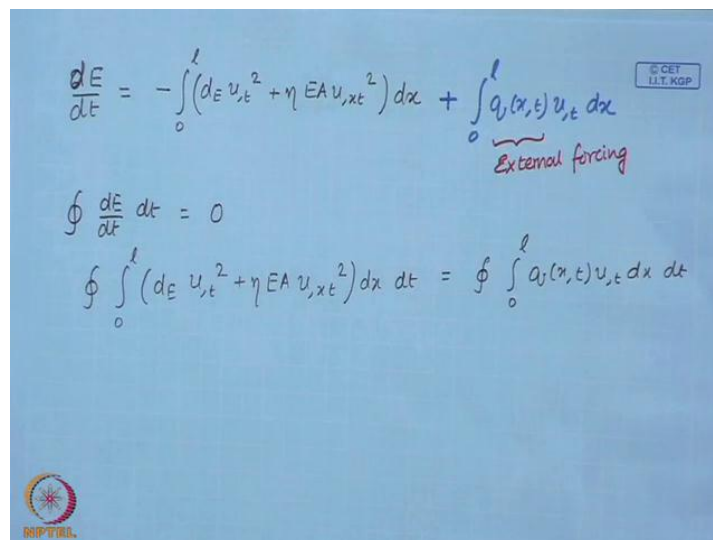 dE/dt = - ∫₀^l (d_E u,t² + η EA u,xt²) dx + ∫₀^l q(x,t) u,t dx
External forcing
© CET
I.I.T. KGP
∮ dE/dt dt = 0
∮ ∫₀^l (d_E u,t² + η EA u,xt²) dx dt = ∮ ∫₀^l q(x,t) u,t dx dt
NPTEL